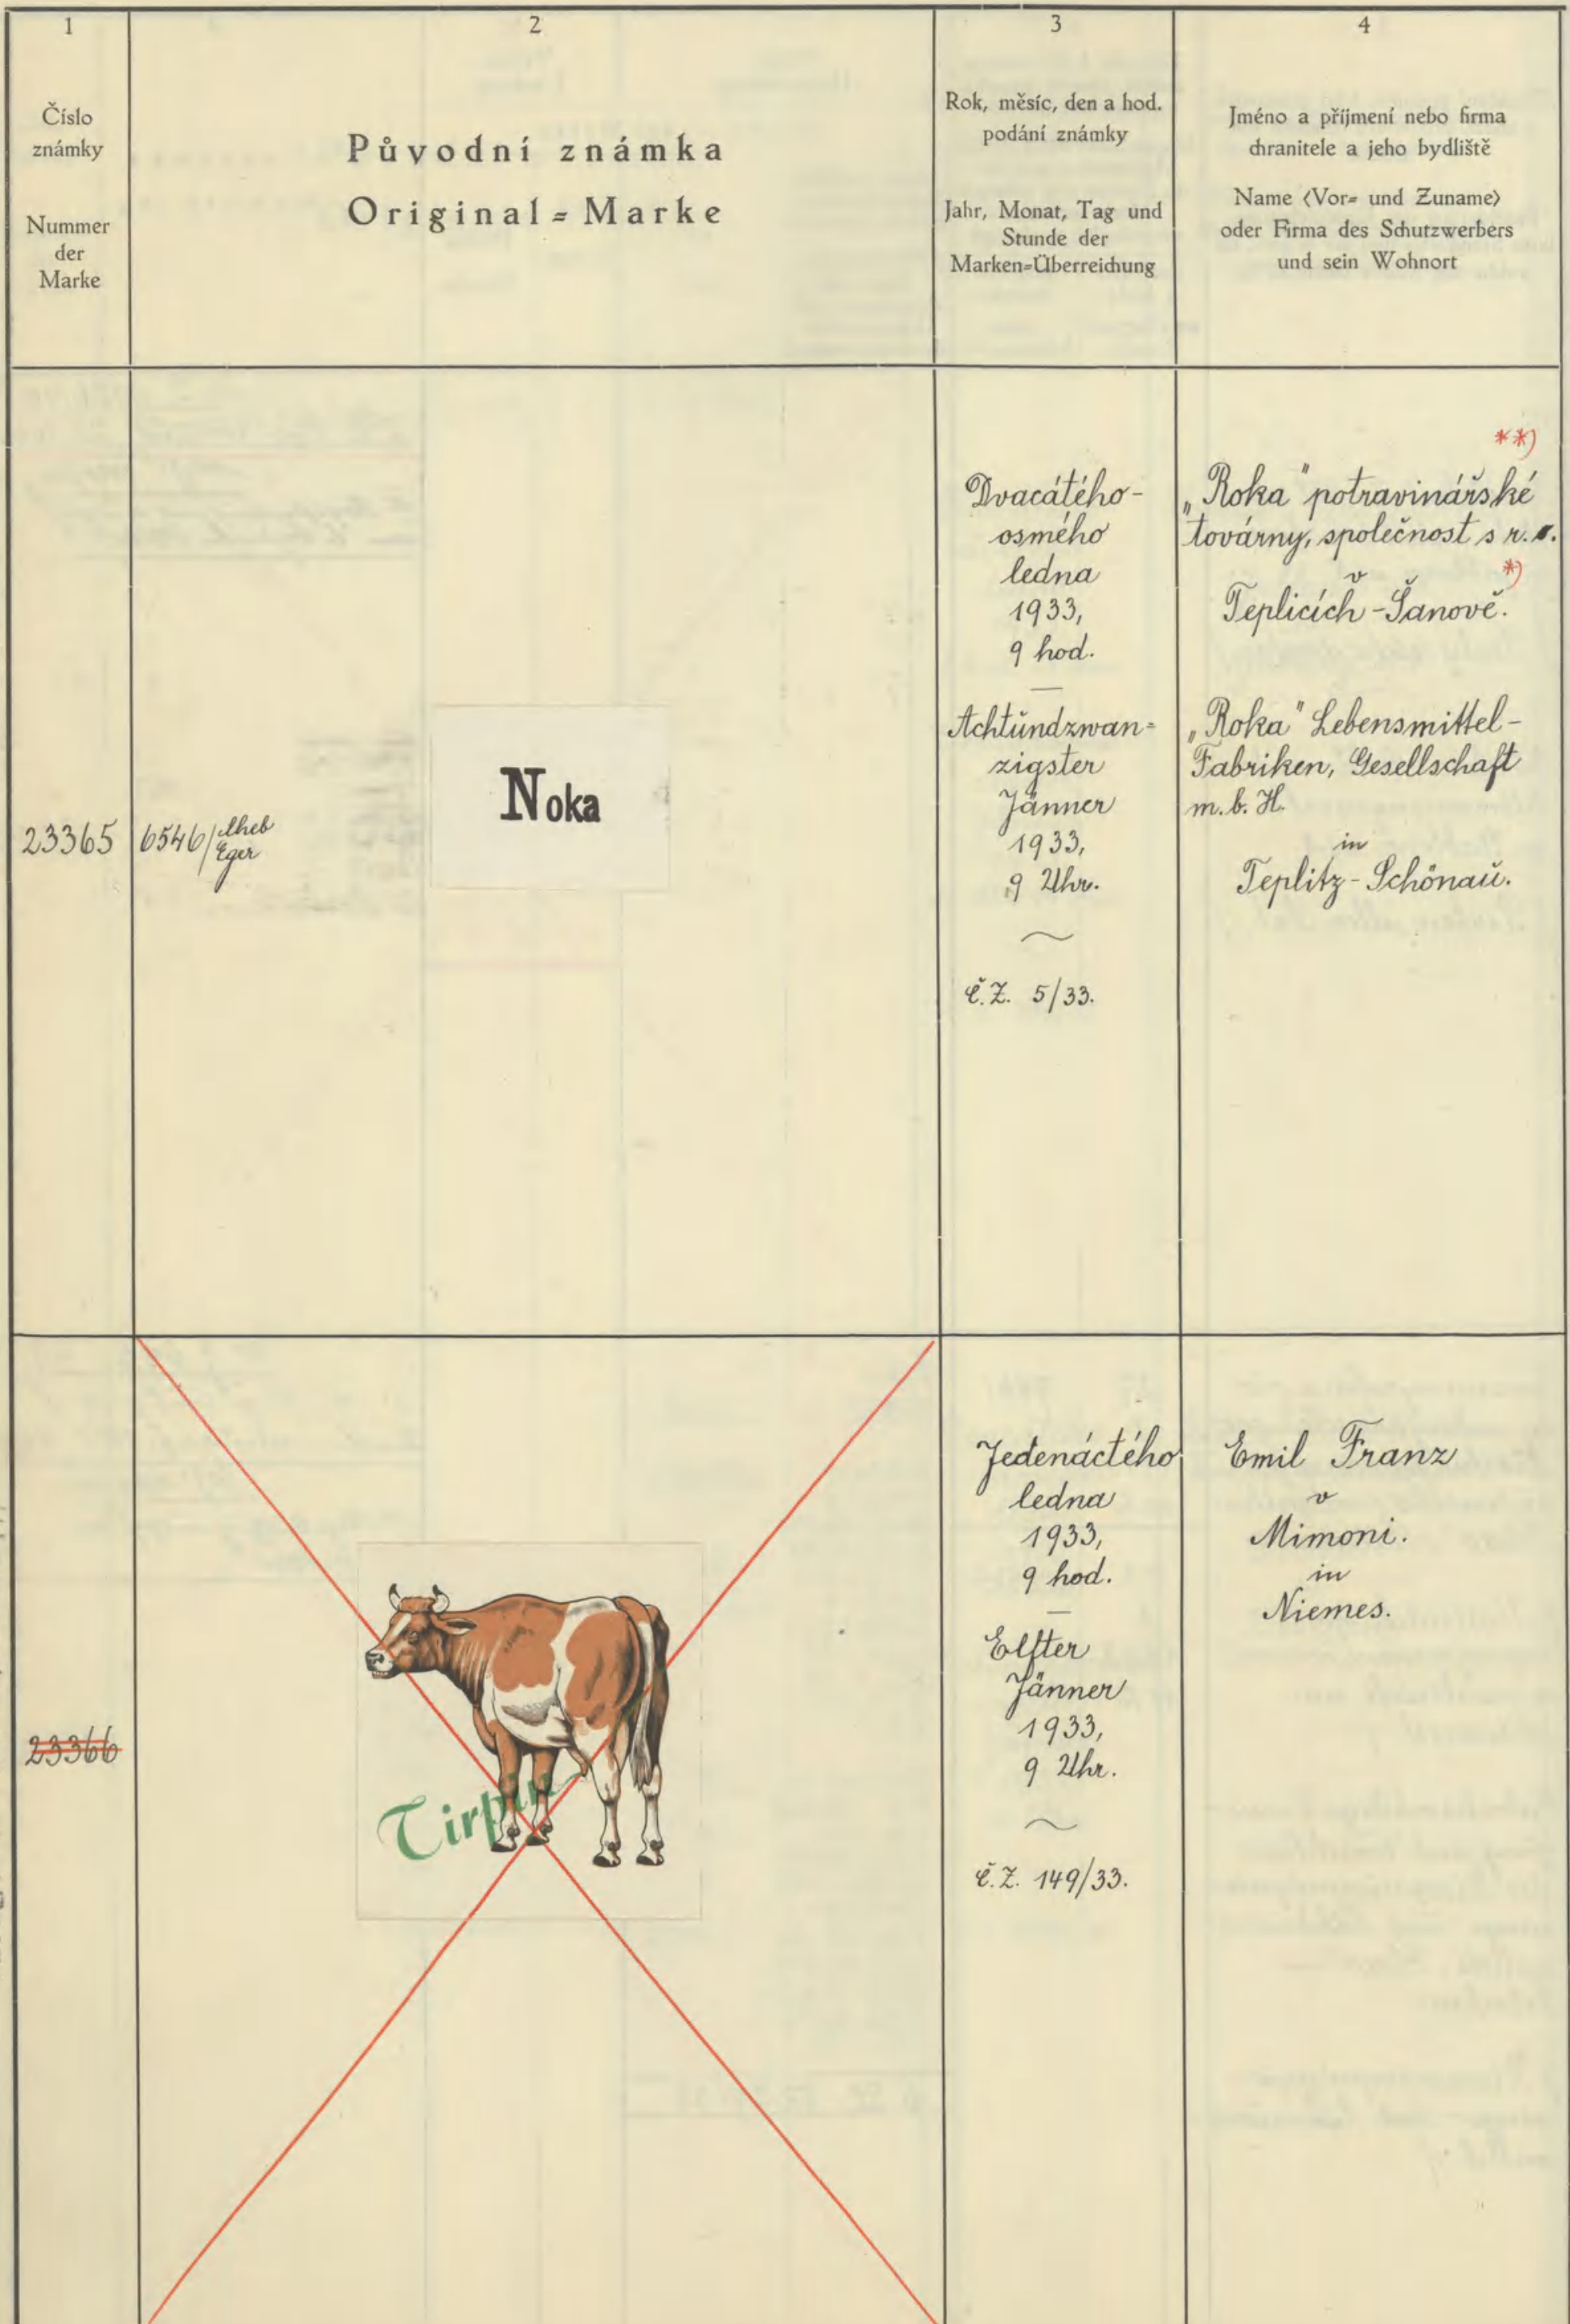 1
2
3
4
Číslo
známky
Nummer
der
Marke
Původní známka
Original-Marke
Rok, měsíc, den a hod.
podání známky
Jahr, Monat, Tag und
Stunde der
Marken-Überreichung
Jméno a příjmení nebo firma
chranitele a jeho bydliště
Name (Vor- und Zuname)
oder Firma des Schutzwerbers
und sein Wohnort
23365
6546/Cheb
Eger
Noka
Dvacátého-
osmého
ledna
1933,
9 hod.
Achtundzwan-
zigster
Jänner
1933,
9 Uhr.
č.Z. 5/33.
**)
„Roka" potravinářské
továrny, společnost s r.o.
*)
v
Teplicích-Šanově.
„Roka" Lebensmittel-
Fabriken, Gesellschaft
m.b.H.
in
Teplitz-Schönau.
23366
Tirpin
Jedenáctého
ledna
1933,
9 hod.
Elfter
Jänner
1933,
9 Uhr.
č.Z. 149/33.
Emil Franz
v
Mimoni.
in
Niemes.